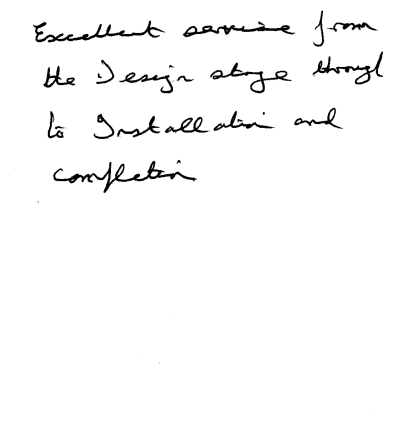 Excellent service from
the Design stage through
to Installation and
completion